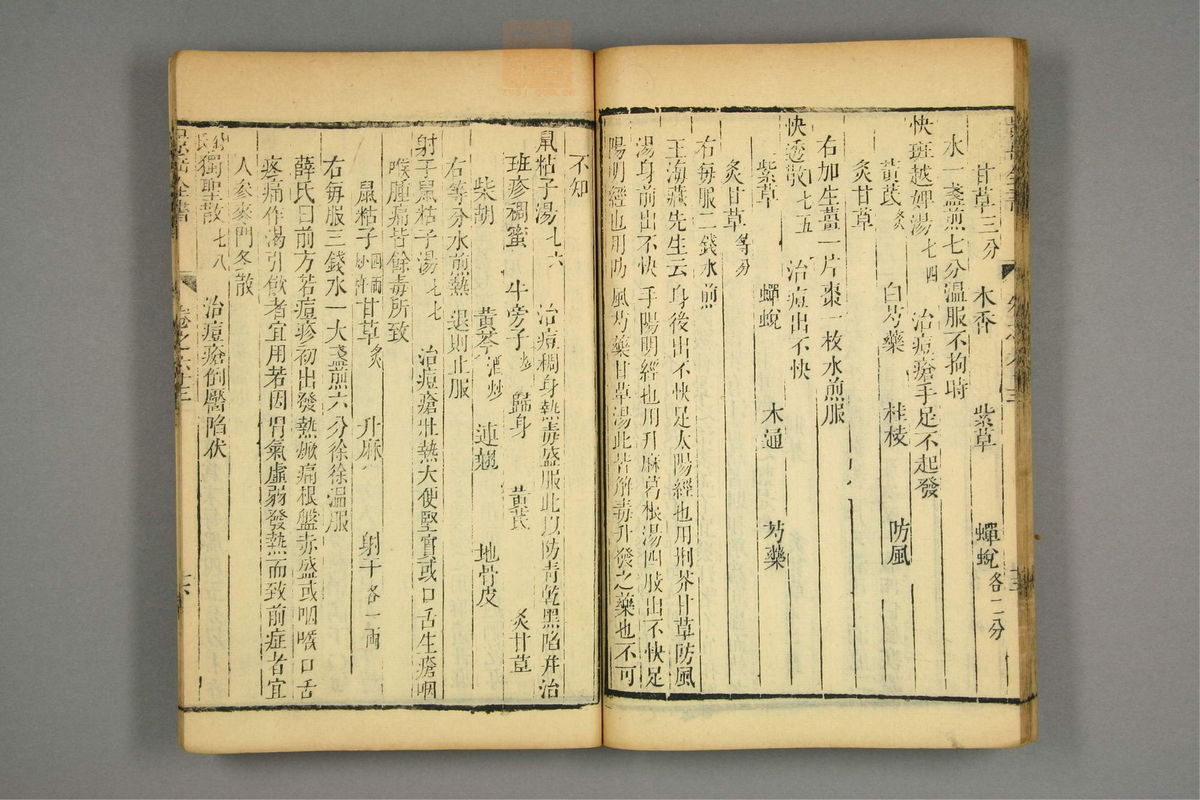 甘草三分　木香　紫草　蟬蛻各二分
水一盞煎七分溫服不拘時
快斑越婢湯七四　治痘瘡手足不起發
黃芪炙　白芍藥　桂枝　防風
炙甘草
右加生薑一片棗一枚水煎服
快透散七五　治痘出不快
紫草　蟬蛻　木通　芍藥
炙甘草等分
右每服二錢水煎
王海藏先生云身後出不快足太陽經也用荆芥甘草防風
湯身前出不快手陽明經也用升麻葛根湯四肢出不快足
陽明經也用防風芍藥甘草湯此皆解毒升發之藥也不可
不知
鼠粘子湯七六　治痘稠身熱毒盛服此以防青乾黑陷并治
班疹稠蜜　牛旁子炒　歸身　黃芪　炙甘草
柴胡　黃芩酒炒　連翹　地骨皮
右等分水煎熱退則止服
射干鼠粘子湯七七　治痘瘡壯熱大便堅實或口舌生瘡咽
喉腫痛皆餘毒所致
鼠粘子四兩炒杵　甘草炙　升麻　射干各一兩
右每服三錢水一大盞煎六分徐徐溫服
薛氏曰前方若痘疹初出發熱焮痛根盤赤盛或咽喉口舌
疼痛作渴引飲者宜用若因胃氣虛弱發熱而致前症者宜
人參麥門冬散
獨聖散七八　治痘瘡倒靨陷伏
卷之六十三
十六